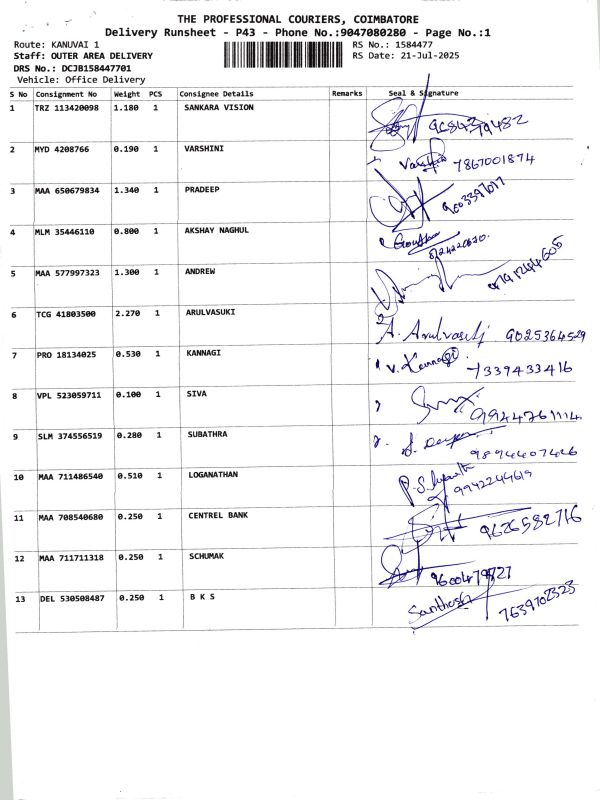 THE PROFESSIONAL COURIERS, COIMBATORE
Delivery Runsheet - P43 - Phone No.:9047080280 - Page No.:1
Route: KANUVAI 1
Staff: OUTER AREA DELIVERY
DRS No.: DCJB158447701
Vehicle: Office Delivery
RS No.: 1584477
RS Date: 21-Jul-2025
S No Consignment No Weight PCS Consignee Details Remarks Seal & Signature
1 TRZ 113420098 1.180 1 SANKARA VISION
2 MYD 4208766 0.190 1 VARSHINI 7867001874
3 MAA 650679834 1.340 1 PRADEEP
4 MLM 35446110 0.800 1 AKSHAY NAGHUL
5 MAA 577997323 1.300 1 ANDREW
6 TCG 41803500 2.270 1 ARULVASUKI A. Arulvasuki 9025364529
7 PRO 18134025 0.530 1 KANNAGI V. Kannagi 7339433416
8 VPL 523059711 0.100 1 SIVA 9944761114
9 SLM 374556519 0.280 1 SUBATHRA 9894407426
10 MAA 711486540 0.510 1 LOGANATHAN 9942244619
11 MAA 708540680 0.250 1 CENTREL BANK 9626582716
12 MAA 711711318 0.250 1 SCHUMAK
13 DEL 530508487 0.250 1 B K S Santhosh 7639702323